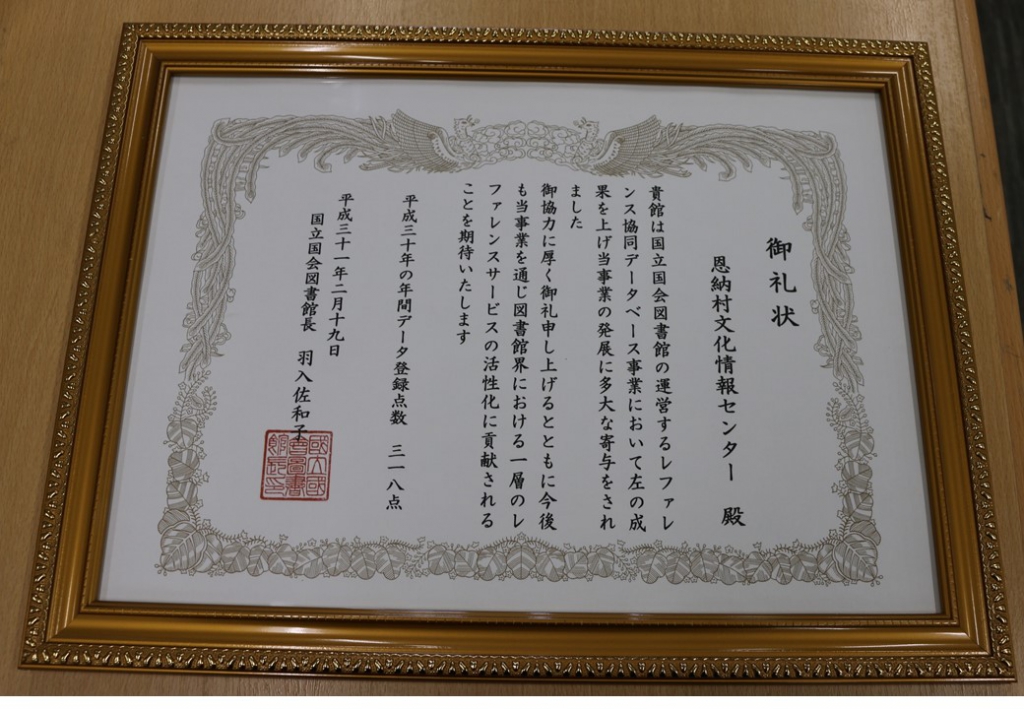 御礼状
恩納村文化情報センター 殿
貴館は国立国会図書館の運営するレファレ
ンス協同データベース事業において左の成
果を上げ当事業の発展に多大な寄与をされ
ました
御協力に厚く御礼申し上げるとともに今後
も当事業を通じ図書館界における一層のレ
ファレンスサービスの活性化に貢献される
ことを期待いたします
平成三十年の年間データ登録点数 三一八点
平成三十一年二月十九日
国立国会図書館長 羽入佐和子